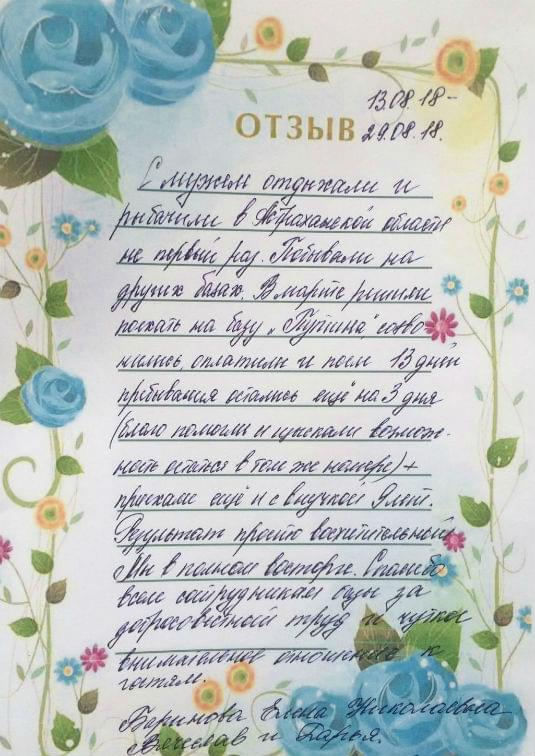 13.08.18 -
ОТЗЫВ 29.08.18.
С мужем отдыхали и
рыбачили в Астраханской области
не первый раз. Побывали на
других базах. В марте решили
поехать на базу „Путина", созво-
нились, оплатили и после 13 дней
пребывания остались ещё на 3 дня
(благо помогли и изыскали возмож-
ность остаться в том же номере) +
приехали ещё и с внучкой 9 лет.
Результат просто восхитительный
Мы в полном восторге. Спасибо
всем сотрудникам базы за
добросовестный труд и чуткое
внимательное отношение к
гостям.
Баринова Елена Николаевна
Вячеслав и Дарья.